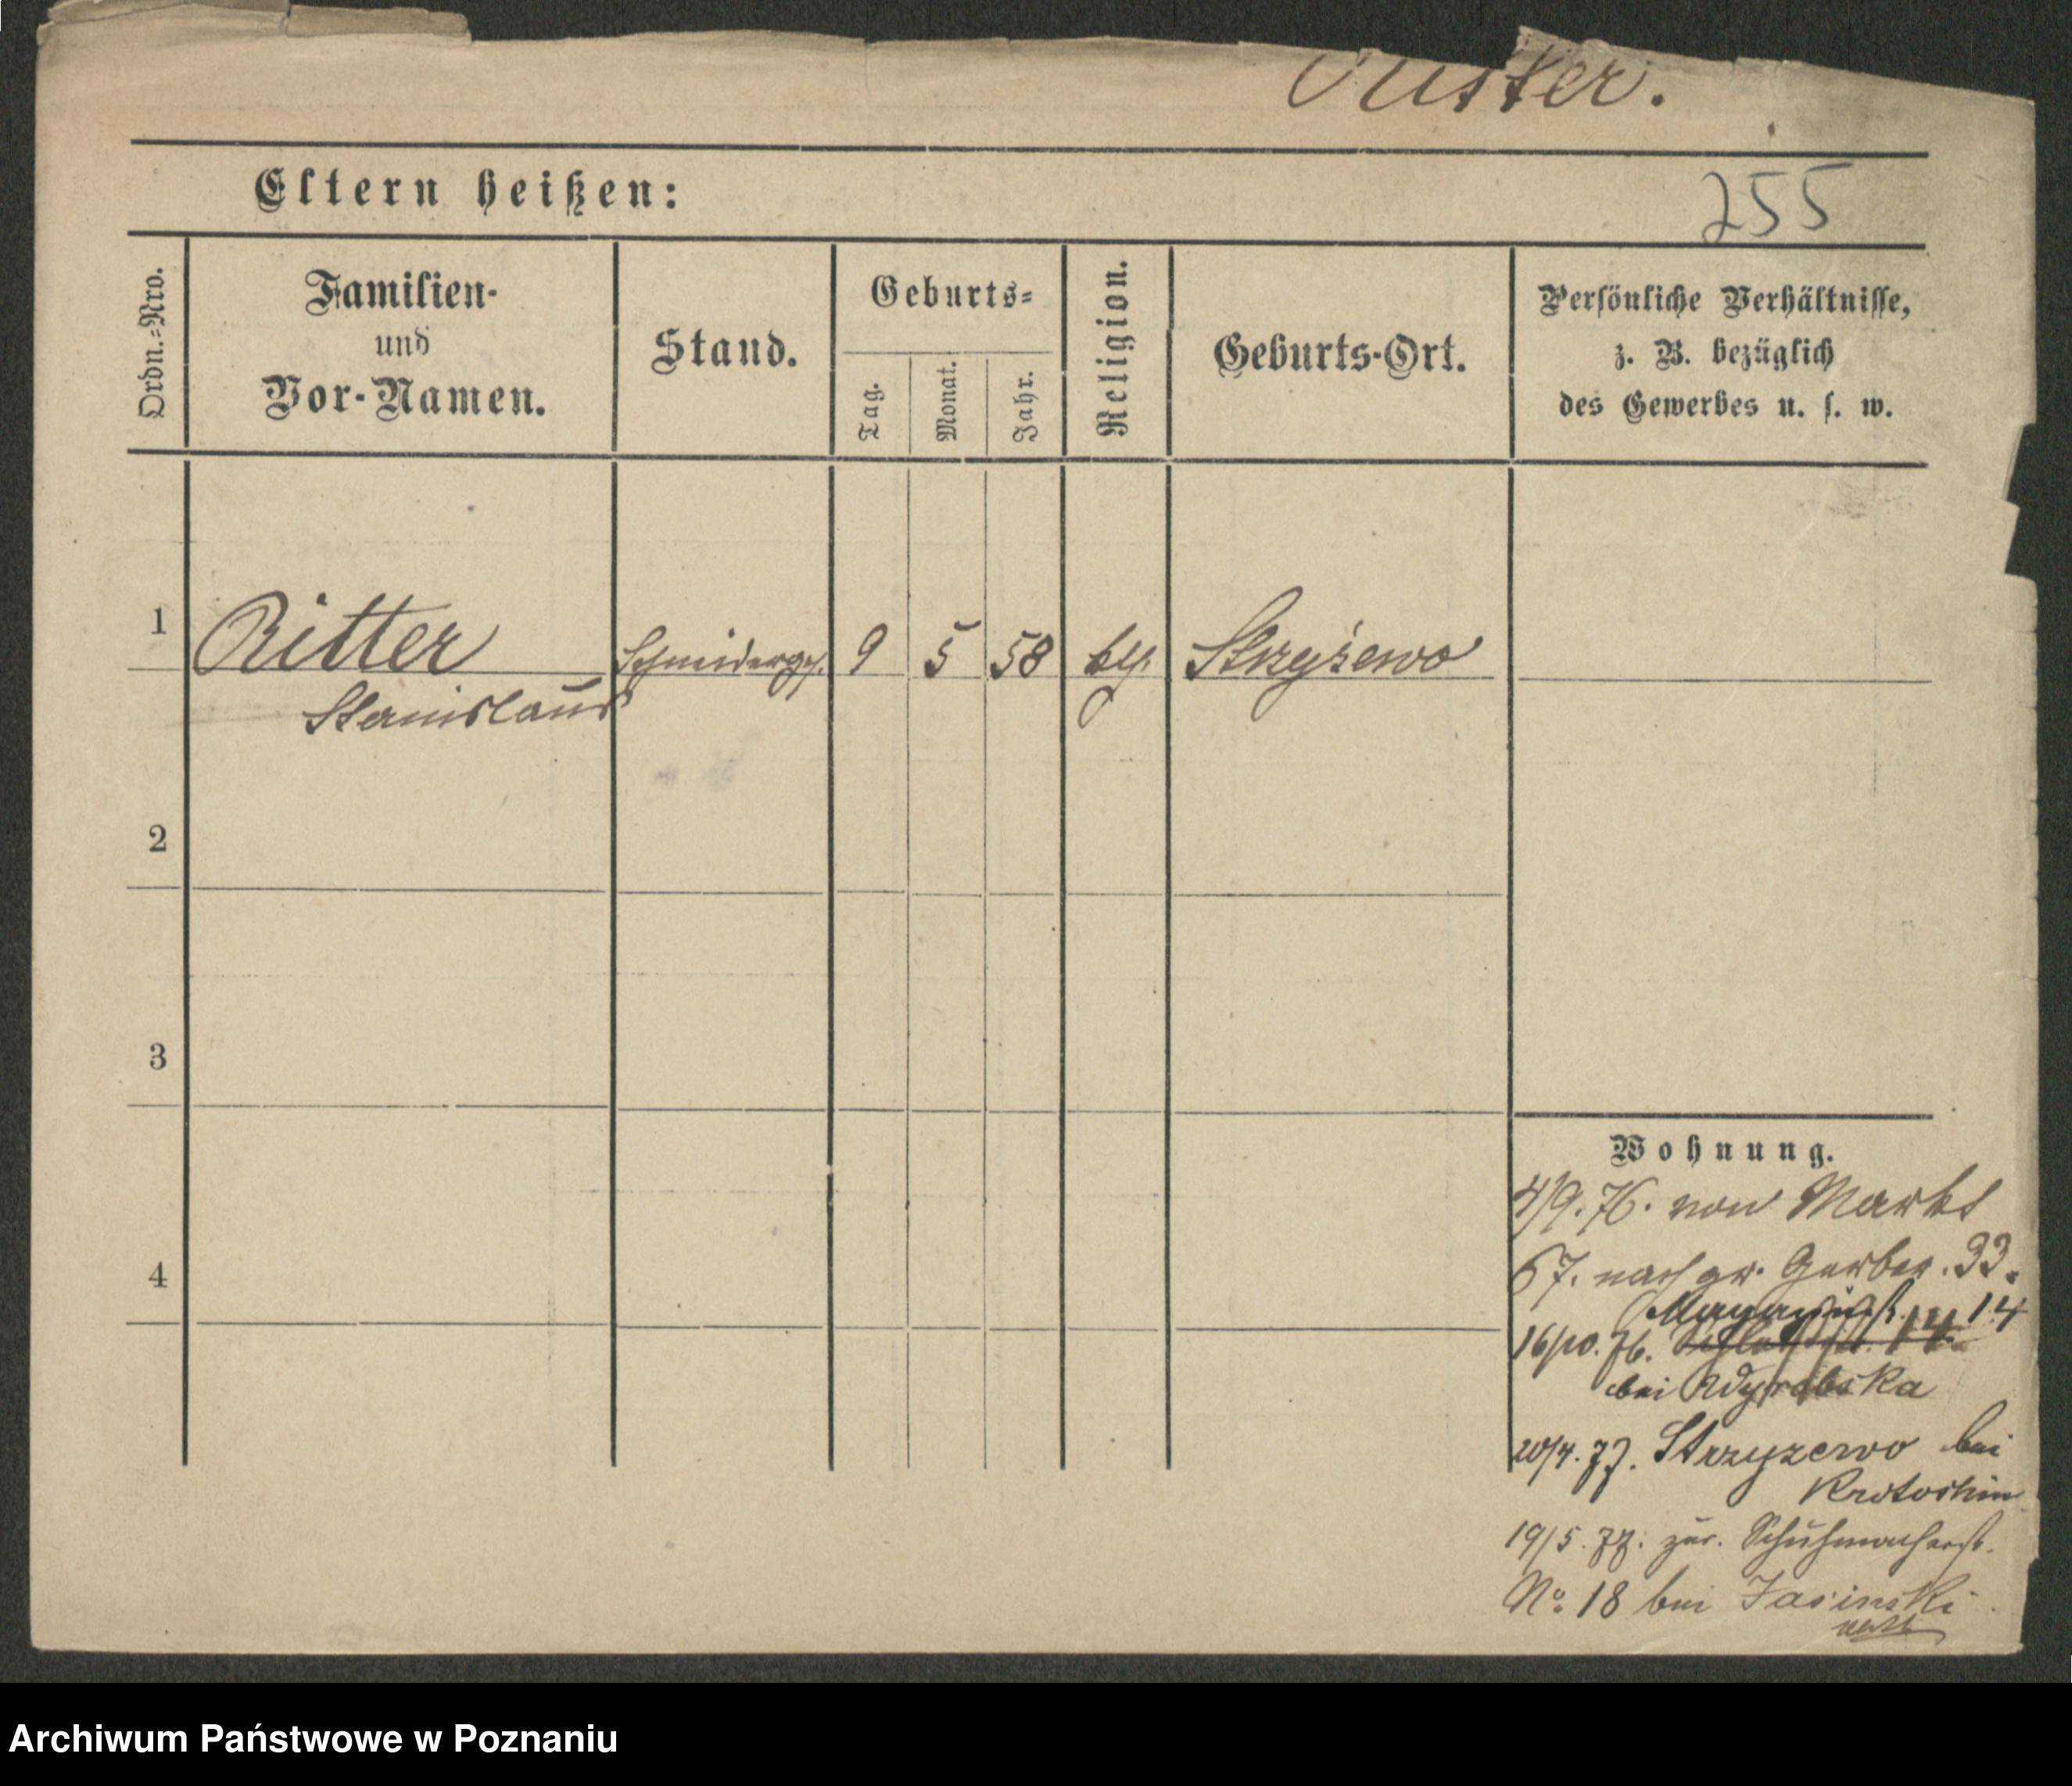 Ritter.
255
Eltern heißen:
Ordn.-Nro.
Familien-
und
Vor-Namen.
Stand.
Geburts-
Tag.
Monat.
Jahr.
Religion.
Geburts-Ort.
Persönliche Verhältnisse,
z. B. bezüglich
des Gewerbes u. s. w.
1 Ritter Schneiderges. 9 5 58 kth. Strzyżewo
Stanislaus
2
3
4
Wohnung.
4/9. 76. von Markt
67. nach gr. Gerber. 33.
Magazinst. 14
16/10. 76. 14.
bei
20/4. 77. Strzyzewo bei
Krotoshin
19/5. 77. zur. Schuhmacherst.
No. 18 bei Jasinski
Archiwum Państwowe w Poznaniu